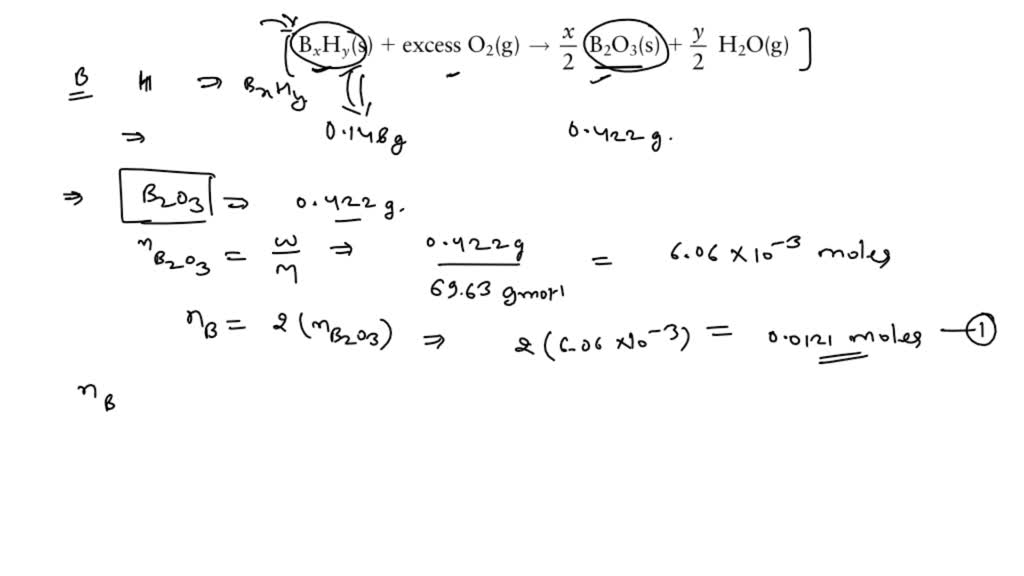 BₓHᵧ(s) + excess O₂(g) → x/2 B₂O₃(s) + y/2 H₂O(g) ]
B H ⇒ BₓHᵧ
⇒ 0.148g 0.422g.
⇒ B₂O₃ ⇒ 0.422g.
n_B₂O₃ = W/M ⇒ 0.422g / 69.63 gmol⁻¹ = 6.06 × 10⁻³ moles
n_B = 2(n_B₂O₃) ⇒ 2(6.06 × 10⁻³) = 0.0121 moles —①
n_B